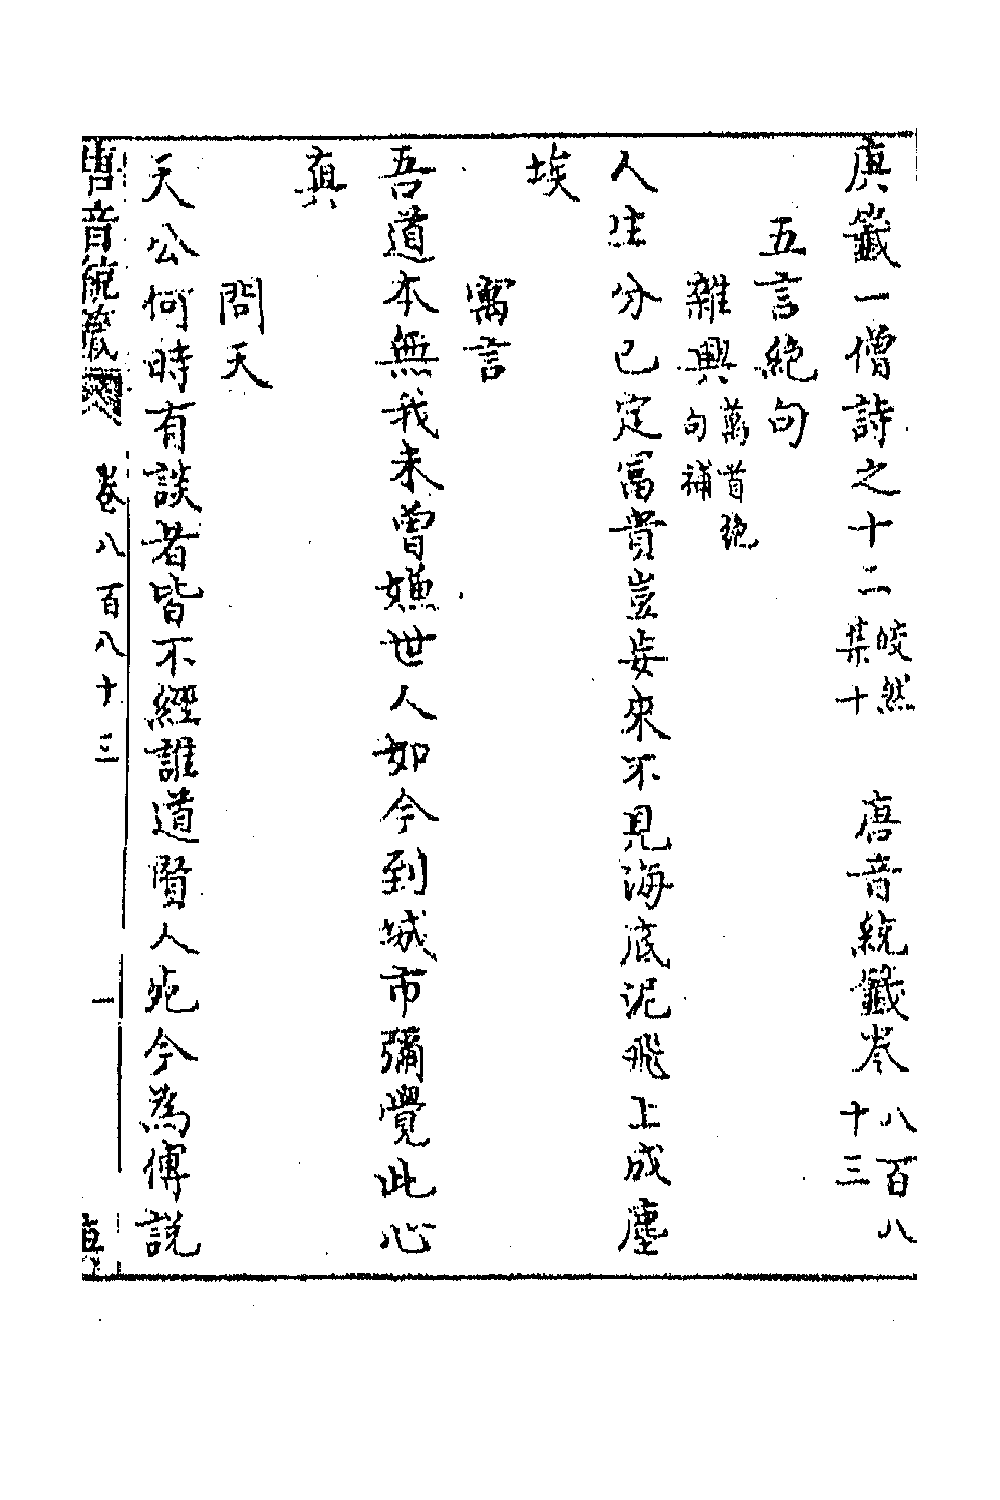 庚籤一僧詩之十二皎然集十　唐音統籤卷八百八十三
五言絶句
雜興萬首絶句補
人生分已定富貴豈妄來不見海底泥飛上成塵
埃
寓言
吾道本無我未曾嫌世人如今到城市彌覺此心
真
問天
天公何時有談者皆不經誰道賢人死今為傅説
唐音統籤 卷八百八十三 一